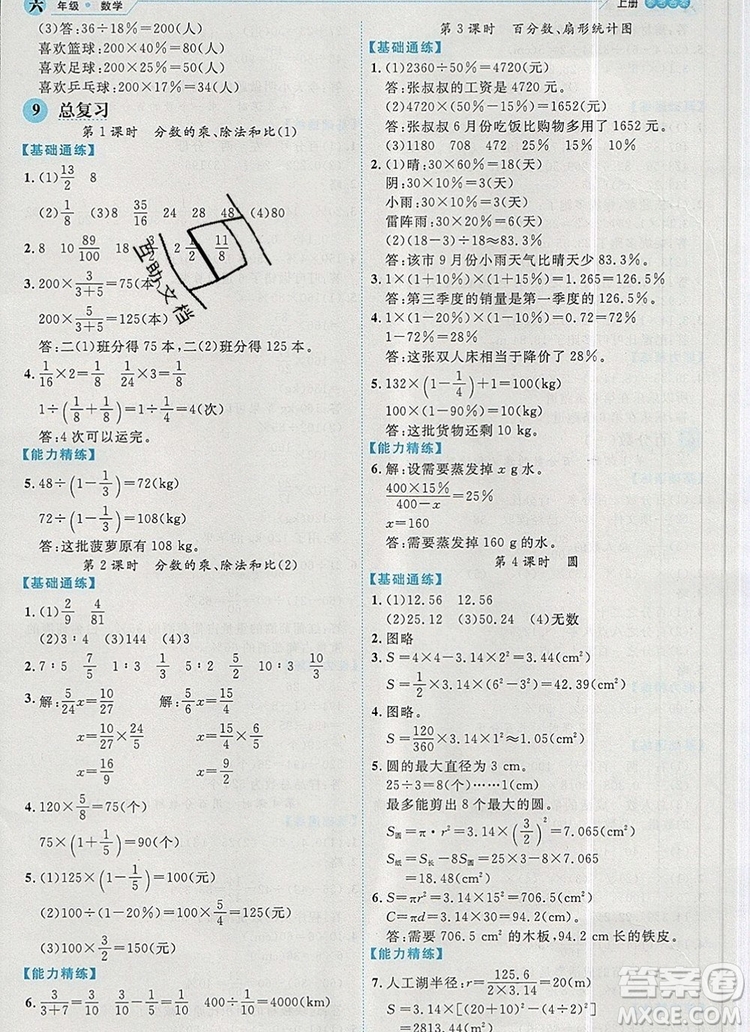 六 年级·数学
(3)答:36÷18%=200(人)
喜欢篮球:200×25%=50(人)
喜欢足球:200×40%=80(人)
喜欢乒乓球:200×17%=34(人)
9 总复习
第1课时 分数的乘、除法和比(1)
【基础通练】
1.(1)13/2 8
(2)1/8 8 35/16 24 28 48 (4)80
2. 8 10 89/100 18 2 1/2 11/8
3. 200×3/(3+5)=75(本)
200×5/(3+5)=125(本)
答:二(1)班分得75本,二(2)班分得125本。
4. 1/16×2=1/8 1/24×3=1/8
1÷(1/8+1/8)=4(次)
答:4次可以运完。
【能力精练】
5. 48÷(1-1/3)=72(kg)
72÷(1-1/3)=108(kg)
答:这批菠萝原有108 kg。
第2课时 分数的乘、除法和比(2)
【基础通练】
1.(1)2/9 4/81
(2)3∶4 (3)144 (4)27
2. 7∶5 7/5 1∶3 1/3 10∶3 10/3
3. 解:5/24x=10/27 解:5/6x=4/15
x=10/27×24/5 x=4/15×6/5
x=16/9 x=8/25
4. 120×5/8=75(个)
75×(1+1/5)=90(个)
5.(1)125×(1-1/5)=100(元)
(2)100÷(1-1/5)=125(元)
【能力精练】
6. 3/(3+7)=3/10 3/10-1/5=1/10 400÷1/10=4000(km)
上册
第3课时 百分数、扇形统计图
【基础通练】
1.(1)2360÷50%=4720(元)
答:张叔叔的工资是4720元。
(2)4720×(50%-15%)=1652(元)
答:张叔叔6月份吃饭比购物多用1652元。
(3)1180 708 472 1040
2.(1)晴:30×60%=18(天)
阴:30×10%=3(天)
小雨:30×10%=3(天)
雷阵雨:30×20%=6(天)
(2)(18-3)÷18≈83.3%
答:该市9月份小雨天气比晴天少83.3%。
3. 1×(1+10%)×(1+15%)=1.265=126.5%
答:第三季度的销量是第一季度的126.5%。
4. 1×(1-20%)×(1-10%)=0.72=72%
1-72%=28%
答:这张双人床相当于降价了28%。
5. 132×(1-1/4)+1=100(kg)
答:这批货物还剩100 kg。
【能力精练】
6. 解:设需要蒸发掉x g水。
400×15%/(400-x)=25%
x=160
答:需要蒸发掉160 g的水。
第4课时 圆
【基础通练】
1.(1)12.56 12.56
(2)25.12 (3)50.24 (4)无数
2. 图略
3. S=4×4-3.14×2²=3.44(cm²)
S=1/2×3.14×(6²-3²)=42.39(cm²)
4. 图略。
S=120/360×3.14×1²≈1.05(cm²)
5. 圆的最大直径为3 cm。
25÷3=8(个)……1(cm)
最多能剪出8个最大的圆。
S圆=π·r²=3.14×(3/2)²=7.065(cm²)
S纸=S长-8S圆=25×3-8×7.065
=18.48(cm²)
6. S=πr²=3.14×15²=706.5(cm²)
C=πd=3.14×15×2=94.2(cm)
答:需要706.5 cm²的木板,94.2 cm长的铁皮。
【能力精练】
7. 人工湖半径:r=125.6/(2×3.14)=20(m)
S=3.14×[(20+4÷2)²-(4÷2)²]
=2813.44(m²)
互助文档
答案圈
MXQE.COM